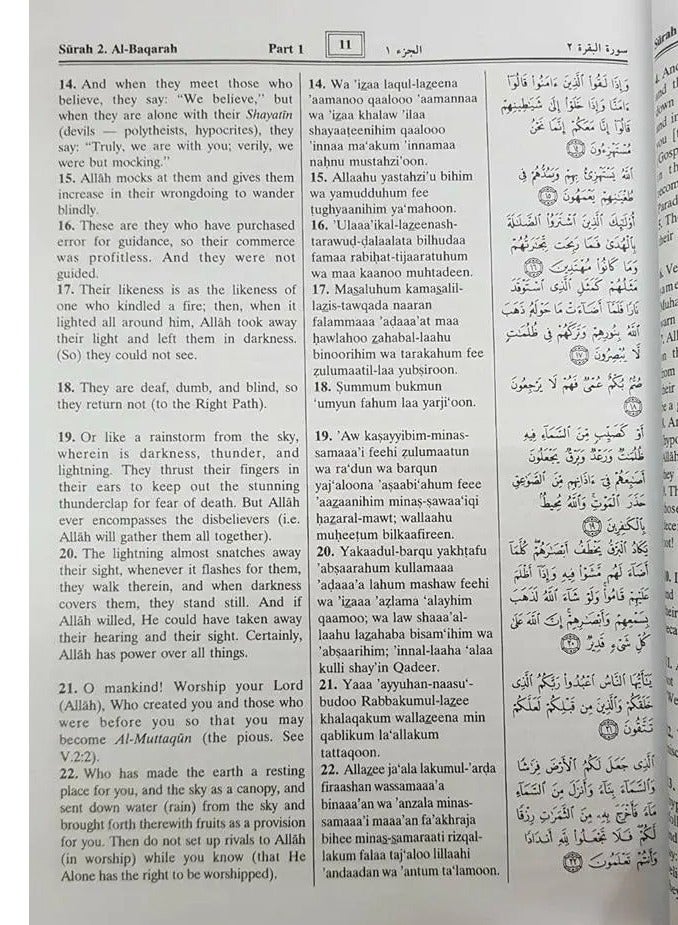 Sūrah 2. Al-Baqarah Part 1 11 الجزء ١ سورة البقرة ٢
14. And when they meet those who
believe, they say: “We believe,” but
when they are alone with their Shayatīn
(devils — polytheists, hypocrites), they
say: “Truly, we are with you; verily, we
were but mocking.”
15. Allāh mocks at them and gives them
increase in their wrongdoing to wander
blindly.
16. These are they who have purchased
error for guidance, so their commerce
was profitless. And they were not
guided.
17. Their likeness is as the likeness of
one who kindled a fire; then, when it
lighted all around him, Allāh took away
their light and left them in darkness.
(So) they could not see.
18. They are deaf, dumb, and blind, so
they return not (to the Right Path).
19. Or like a rainstorm from the sky,
wherein is darkness, thunder, and
lightning. They thrust their fingers in
their ears to keep out the stunning
thunderclap for fear of death. But Allāh
ever encompasses the disbelievers (i.e.
Allāh will gather them all together).
20. The lightning almost snatches away
their sight, whenever it flashes for them,
they walk therein, and when darkness
covers them, they stand still. And if
Allāh willed, He could have taken away
their hearing and their sight. Certainly,
Allāh has power over all things.
21. O mankind! Worship your Lord
(Allāh), Who created you and those who
were before you so that you may
become Al-Muttaqūn (the pious. See
V.2:2).
22. Who has made the earth a resting
place for you, and the sky as a canopy, and
sent down water (rain) from the sky and
brought forth therewith fruits as a provision
for you. Then do not set up rivals to Allāh
(in worship) while you know (that He
Alone has the right to be worshipped).
14. Wa ’iẕaa laqul-laẕeena
’aamanoo qaalooo ’aamannaa
wa ’iẕaa khalaw ’ilaa
shayaaṭeenihim qaalooo
’innaa ma‘akum ’innamaa
naḥnu mustahzi’oon.
15. Allaahu yastahzi’u bihim
wa yamudduhum fee
ṭughyaanihim ya‘mahoon.
16. ’Ulaaa’ikal-lazeenash-
tarawuḍ-ḍalaalata bilhudaa
famaa rabiḥat-tijaaratuhum
wa maa kaanoo muhtadeen.
17. Maṣaluhum kamaṣalil-
laẕis-tawqada naaran
falammaaa ’aḍaaa’at maa
ḥawlahoo ẕahabal-laahu
binoorihim wa tarakahum fee
ẓulumaatil-laa yubṣiroon.
18. Ṣummum bukmun
‘umyun fahum laa yarji‘oon.
19. ’Aw kaṣayyibim-minas-
samaaa’i feehi ẓulumaatun
wa ra‘dun wa barqun
yaj‘aloona ’aṣaabi‘ahum feee
’aaẕaanihim minaṣ-ṣawaa‘iqi
ḥaẕaral-mawt; wallaahu
muḥeeṭum bilkaafireen.
20. Yakaadul-barqu yakhṭafu
’abṣaarahum kullamaaa
’aḍaaa’a lahum mashaw feehi
wa ’iẕaaa ’aẓlama ‘alayhim
qaamoo; wa law shaaa’al-
laahu laẕahaba bisam‘ihim wa
’abṣaarihim; ’innal-laaha ‘alaa
kulli shay’in Qadeer.
21. Yaaa ’ayyuhan-naasu‘-
budoo Rabbakumul-laẕee
khalaqakum wallaẕeena min
qablikum la‘allakum
tattaqoon.
22. Allaẕee ja‘ala lakumul-’arḍa
firaashan wassamaaa’a
binaaa’an wa ’anzala minas-
samaaa’i maaa’an fa’akhraja
bihee minaṣ-ṣamaraati rizqal-
lakum falaa taj‘aloo lillaahi
’andaadan wa ’antum ta‘lamoon.
وَإِذَا لَقُوا۟ ٱلَّذِينَ ءَامَنُوا۟ قَالُوٓا۟
ءَامَنَّا وَإِذَا خَلَوْا۟ إِلَىٰ شَيَـٰطِينِهِمْ
قَالُوٓا۟ إِنَّا مَعَكُمْ إِنَّمَا نَحْنُ
مُسْتَهْزِءُونَ ١٤
ٱللَّهُ يَسْتَهْزِئُ بِهِمْ وَيَمُدُّهُمْ فِى
طُغْيَـٰنِهِمْ يَعْمَهُونَ ١٥
أُو۟لَـٰٓئِكَ ٱلَّذِينَ ٱشْتَرَوُا۟ ٱلضَّلَـٰلَةَ
بِٱلْهُدَىٰ فَمَا رَبِحَت تِّجَـٰرَتُهُمْ
وَمَا كَانُوا۟ مُهْتَدِينَ ١٦
مَثَلُهُمْ كَمَثَلِ ٱلَّذِى ٱسْتَوْقَدَ
نَارًا فَلَمَّآ أَضَآءَتْ مَا حَوْلَهُۥ ذَهَبَ
ٱللَّهُ بِنُورِهِمْ وَتَرَكَهُمْ فِى ظُلُمَـٰتٍ
لَّا يُبْصِرُونَ ١٧
صُمٌّۢ بُكْمٌ عُمْىٌ فَهُمْ لَا يَرْجِعُونَ
١٨
أَوْ كَصَيِّبٍ مِّنَ ٱلسَّمَآءِ فِيهِ
ظُلُمَـٰتٌ وَرَعْدٌ وَبَرْقٌ يَجْعَلُونَ
أَصَـٰبِعَهُمْ فِىٓ ءَاذَانِهِم مِّنَ ٱلصَّوَٰعِقِ
حَذَرَ ٱلْمَوْتِ ۚ وَٱللَّهُ مُحِيطٌۢ
بِٱلْكَـٰفِرِينَ ١٩
يَكَادُ ٱلْبَرْقُ يَخْطَفُ أَبْصَـٰرَهُمْ ۖ كُلَّمَآ
أَضَآءَ لَهُم مَّشَوْا۟ فِيهِ وَإِذَآ أَظْلَمَ
عَلَيْهِمْ قَامُوا۟ ۚ وَلَوْ شَآءَ ٱللَّهُ لَذَهَبَ
بِسَمْعِهِمْ وَأَبْصَـٰرِهِمْ ۚ إِنَّ ٱللَّهَ عَلَىٰ
كُلِّ شَىْءٍ قَدِيرٌ ٢٠
يَـٰٓأَيُّهَا ٱلنَّاسُ ٱعْبُدُوا۟ رَبَّكُمُ ٱلَّذِى
خَلَقَكُمْ وَٱلَّذِينَ مِن قَبْلِكُمْ لَعَلَّكُمْ
تَتَّقُونَ ٢١
ٱلَّذِى جَعَلَ لَكُمُ ٱلْأَرْضَ فِرَٰشًا
وَٱلسَّمَآءَ بِنَآءً وَأَنزَلَ مِنَ ٱلسَّمَآءِ
مَآءً فَأَخْرَجَ بِهِۦ مِنَ ٱلثَّمَرَٰتِ رِزْقًا
لَّكُمْ ۖ فَلَا تَجْعَلُوا۟ لِلَّهِ أَندَادًا
وَأَنتُمْ تَعْلَمُونَ ٢٢
Sūrah